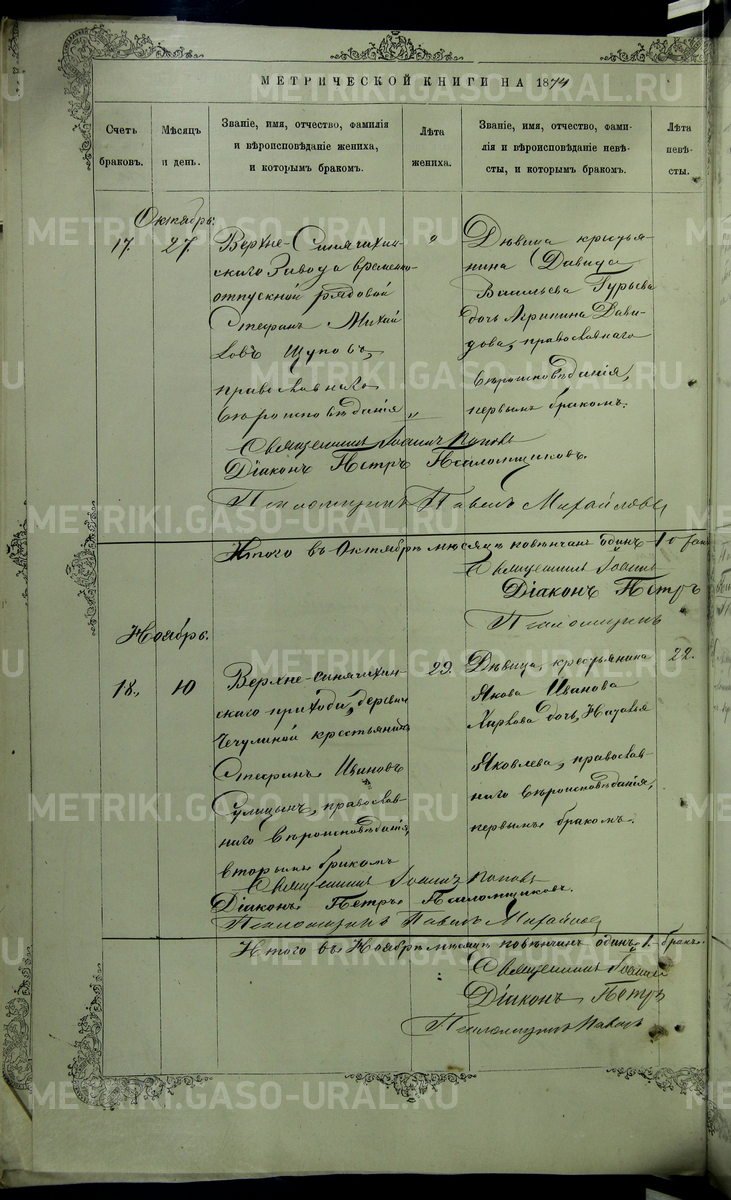 МЕТРИЧЕСКОЙ КНИГИ НА 1874
Счетъ браковъ.
Мѣсяцъ и день.
Званіе, имя, отчество, фамилія и вѣроисповѣданіе жениха, и которымъ бракомъ.
Лѣта жениха.
Званіе, имя, отчество, фамилія и вѣроисповѣданіе невѣсты, и которымъ бракомъ.
Лѣта невѣсты.
Октябрь.
17. 27.
Верхне-Синячихин-
скаго Завода временно-
отпускной рядовой
Стефанъ Михай
ловъ Щуповъ,
православнаго
вѣроисповѣданія
Дѣвица крестья-
нина Давида
Васильева Гурьева
дочь Агрипина Дави-
дова, православнаго
вѣроисповѣданія,
первымъ бракомъ.
Священникъ Іоаннъ Поповъ
Діаконъ Петръ Псаломщиковъ.
Псаломщикъ Павелъ Михайловъ
Итого въ Октябрѣ мѣсяцѣ повѣнчанъ одинъ 1
Священникъ Іоаннъ
Діаконъ Петръ
Псаломщикъ
Ноябрь.
18. 10
Верхне-синячихин-
скаго прихода, деревни
Чечулиной крестьянинъ
Стефанъ Ивановъ
Сулицынъ, православ-
наго вѣроисповѣданія,
вторымъ бракомъ
29.
Дѣвица, крестьянина
Якова Иванова
дочь, Наталья
Яковлева, православ-
наго вѣроисповѣданія,
первымъ бракомъ.
22.
Священникъ Іоаннъ Поповъ
Діаконъ Петръ Псаломщиковъ.
Псаломщикъ Павелъ Михайловъ
Итого въ Ноябрѣ мѣсяцѣ повѣнчанъ одинъ 1. бракъ.
Священникъ Іоаннъ
Діаконъ Петръ
Псаломщикъ Павелъ
METRIKI.GASO-URAL.RU